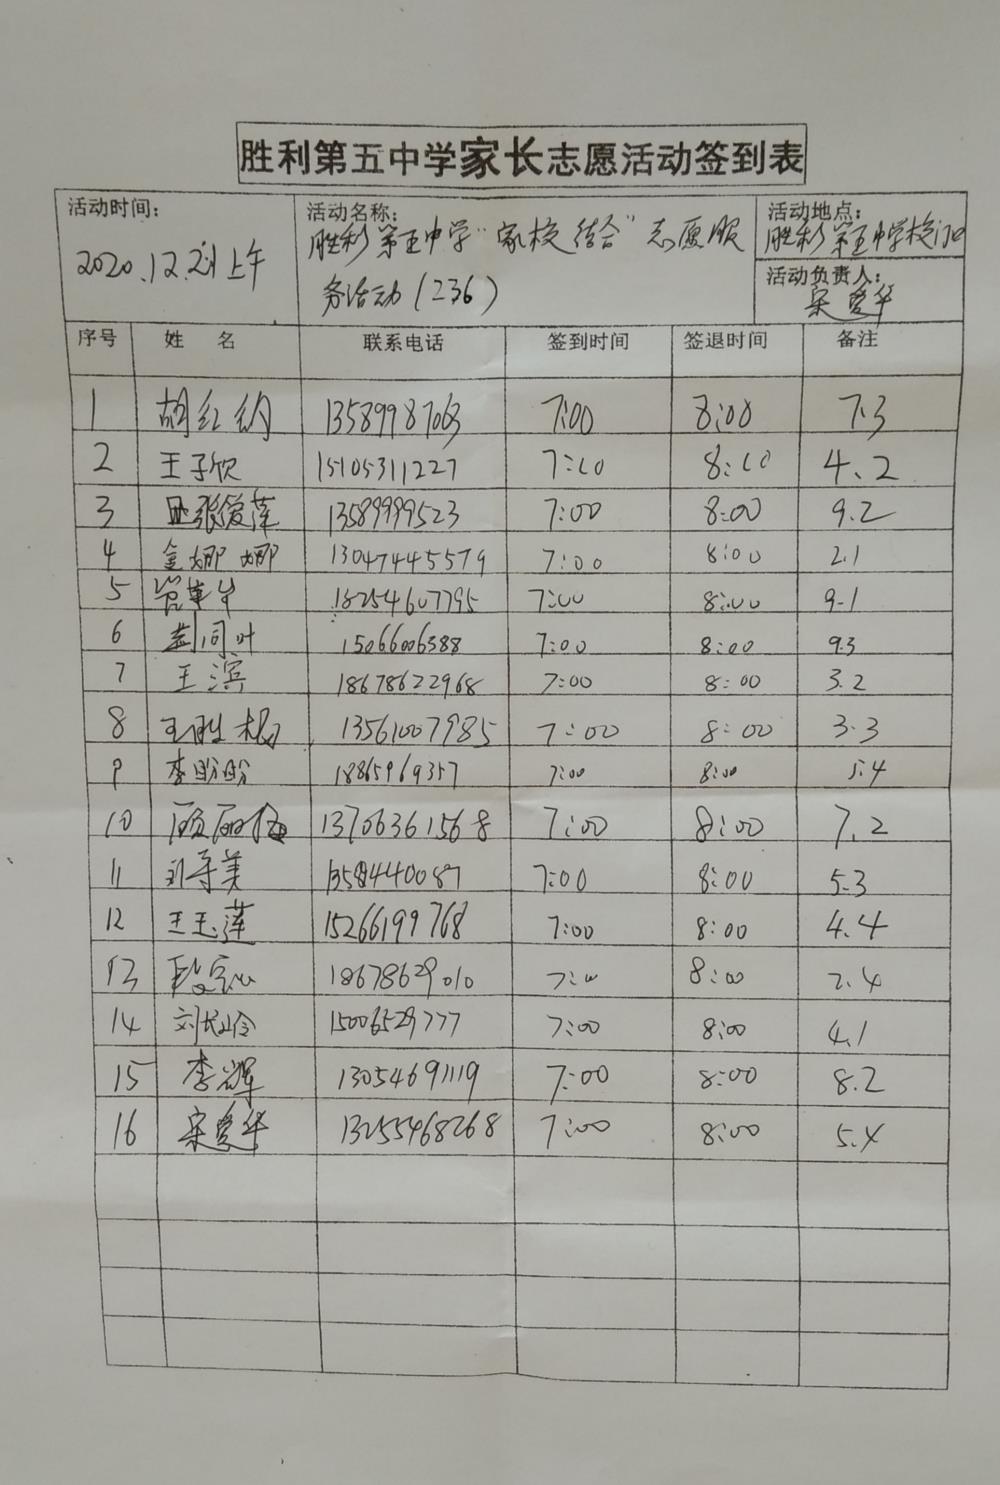 胜利第五中学家长志愿活动签到表
活动时间:
2020.12.21上午
活动名称:
胜利第五中学“家校结合”志愿服
务活动(236)
活动地点:
胜利第五中学校门口
活动负责人:
宋爱华
序号 姓 名 联系电话 签到时间 签退时间 备注
1 胡红 13589987063 7:00 8:00 7.3
2 王子欣 15105311227 7:00 8:00 4.2
3 张俊莲 13589999523 7:00 8:00 9.2
4 金娜娜 13047445579 7:00 8:00 2.1
5 18254607795 7:00 8:00 9.1
6 同叶 15066006388 7:00 8:00 9.3
7 王滨 18678622968 7:00 8:00 3.2
8 王胜 13561007985 7:00 8:00 3.3
9 李盼盼 18865969357 7:00 8:00 5.4
10 顾丽梅 13706361568 7:00 8:00 7.2
11 刘寻美 13584440087 7:00 8:00 5.3
12 王玉莲 15266199768 7:00 8:00 4.4
13 段 18678629010 7:00 8:00 2.4
14 刘 15006529777 7:00 8:00 4.1
15 李辉 13054691119 7:00 8:00 8.2
16 宋爱华 13255468268 7:00 8:00 5.4